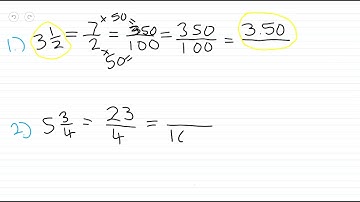 1.) 3 1/2 = 7/2 ×50 ×50 = 350/100 = 350/100 = 3.50
2) 5 3/4 = 23/4 = /10